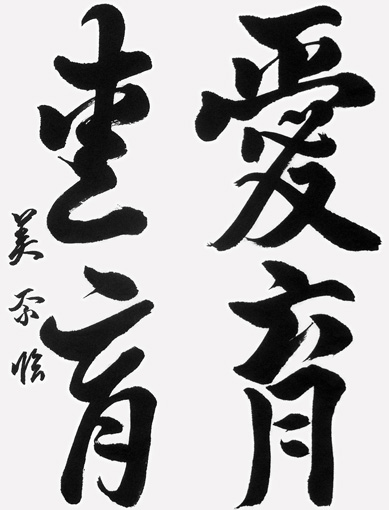 愛育
恵育
美奈臨